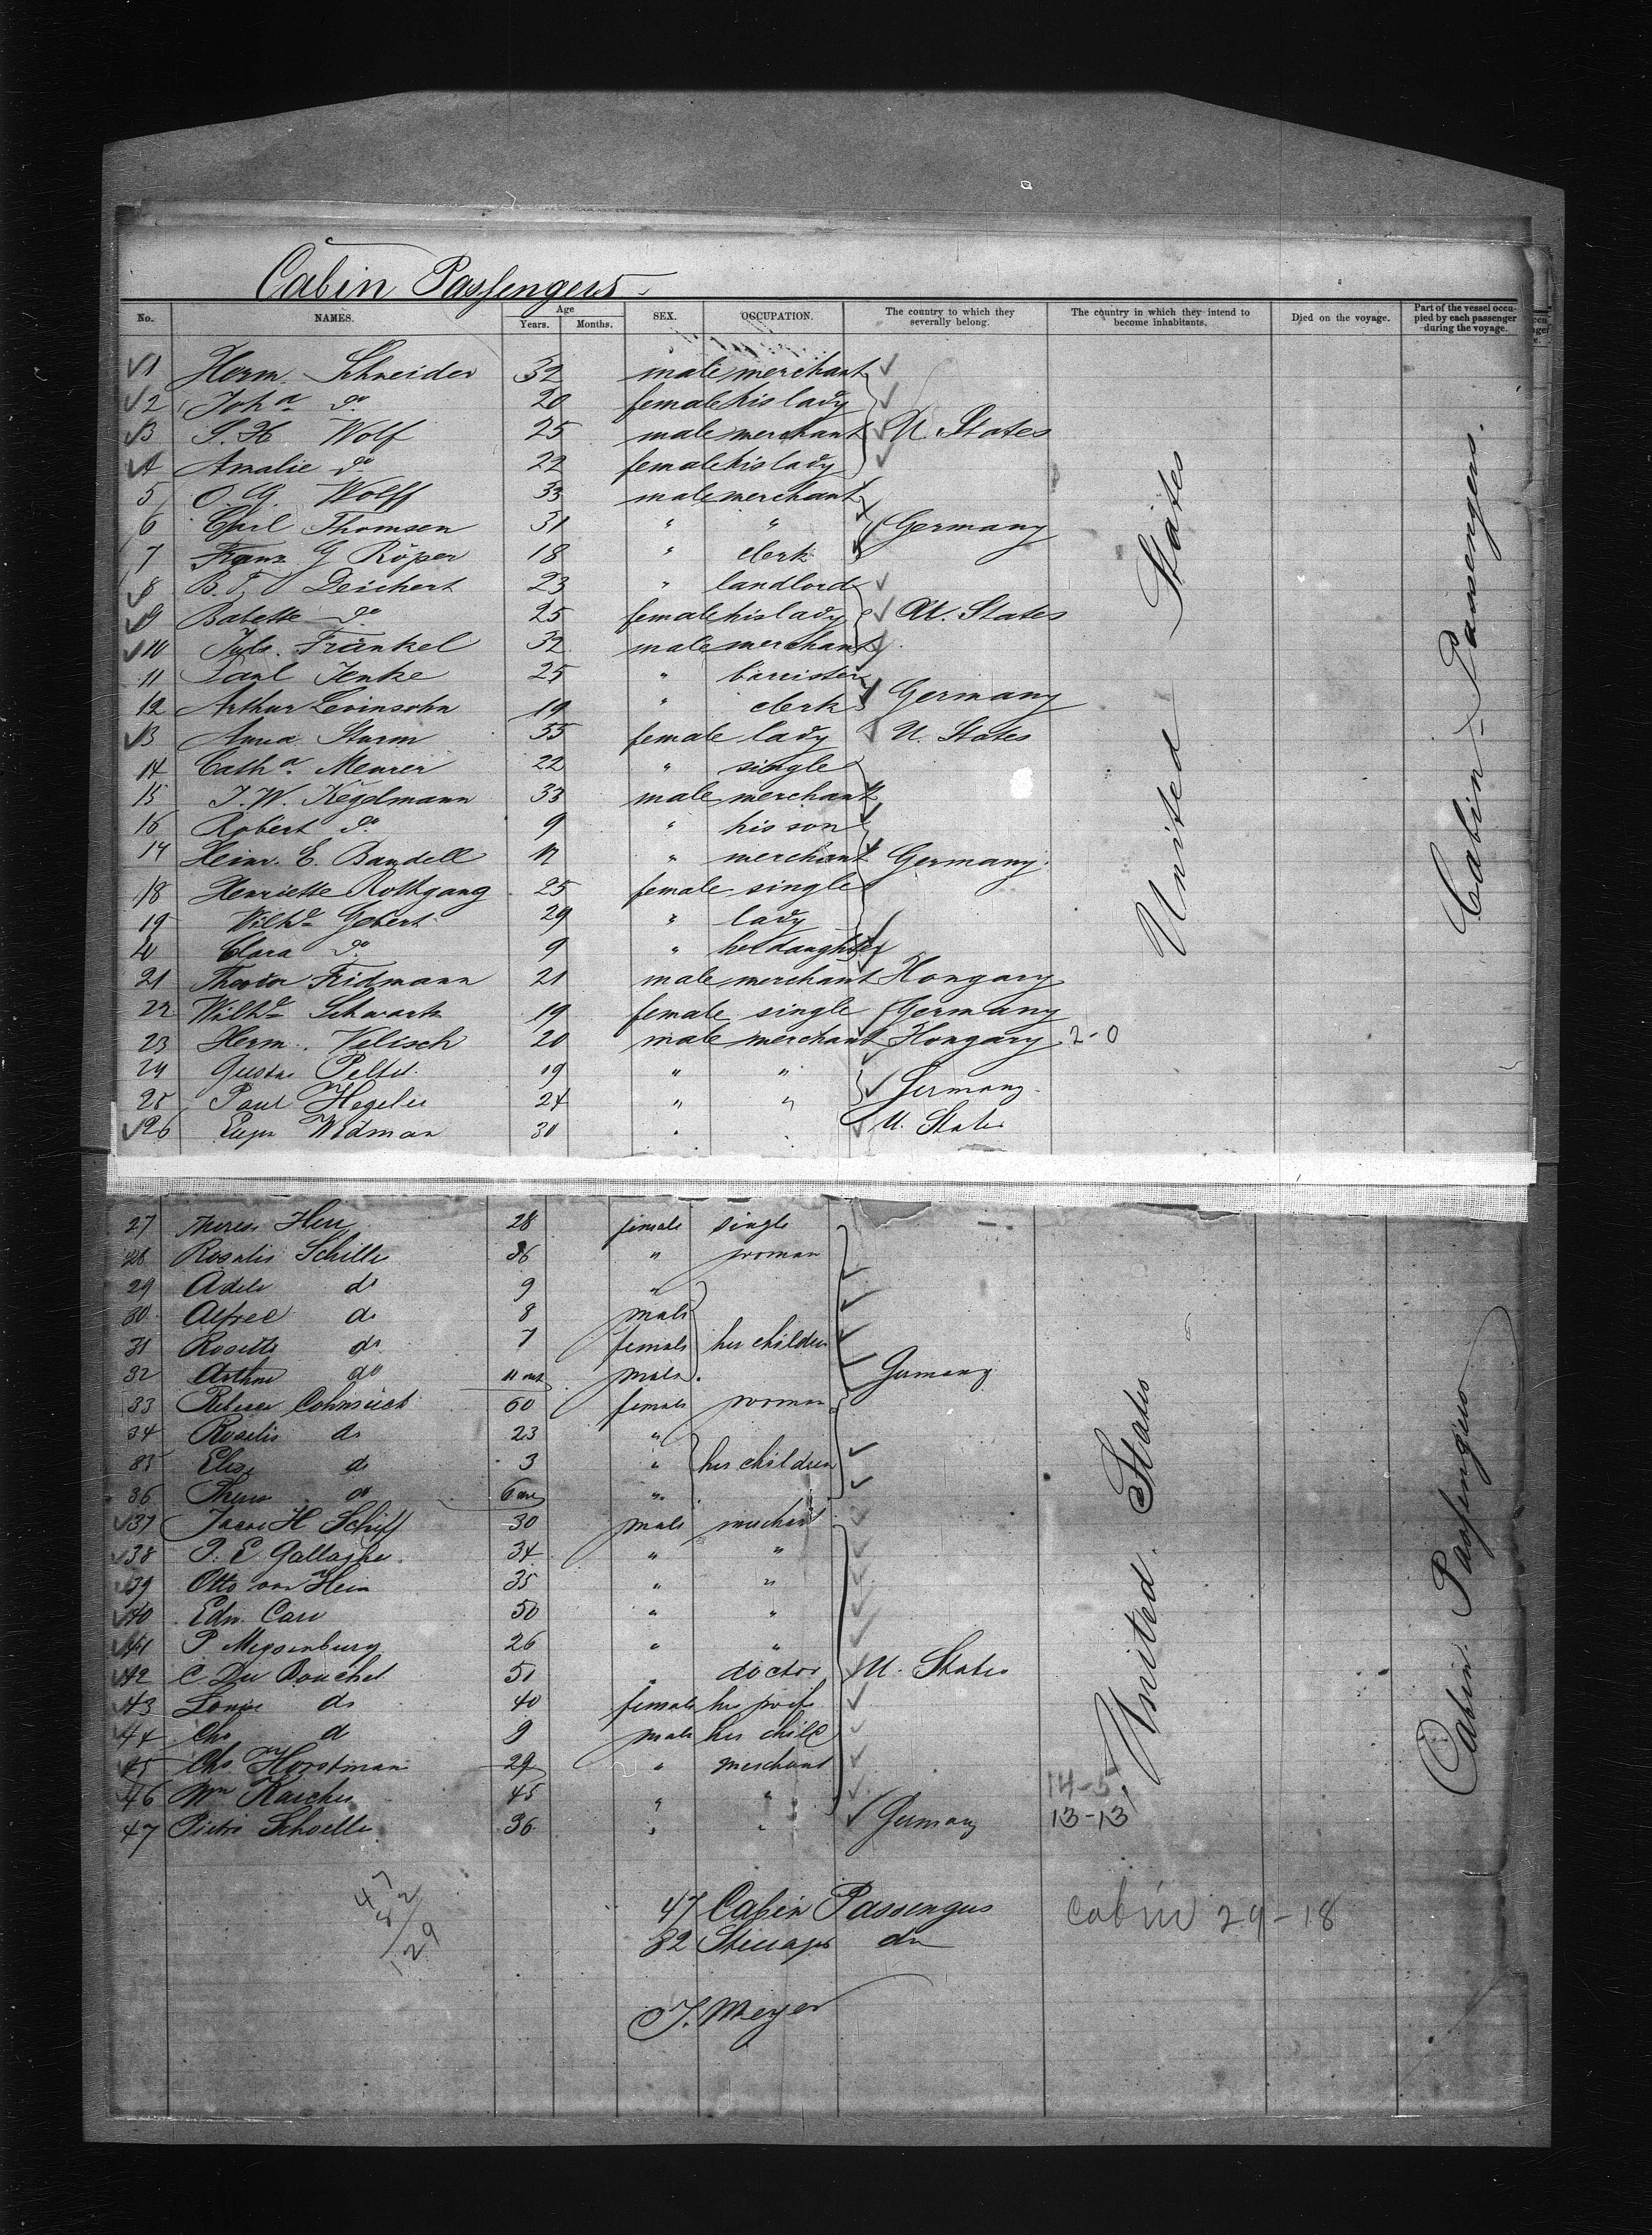 Cabin Passengers.
No. NAMES. Age Years. Months. SEX. OCCUPATION. The country to which they severally belong. The country in which they intend to become inhabitants. Died on the voyage. Part of the vessel occupied by each passenger during the voyage.
1 Herm. Schneider 32 male merchant
2 Joh a do 20 female his lady
3 S. H. Wolf 25 male merchant U. States
4 Amalie do 22 female his lady
5 O. G. Wolff 33 male merchant
6 Carl Thomsen 31 " " Germany
7 Franz G Röper 18 " clerk
8 B. F. Deichert 23 " landlord
9 Babette do 25 female his lady U. States
10 Juls. Fränkel 32 male merchant
11 Paul Jenke 25 " barrister
12 Arthur Levinsohn 19 " clerk Germany
13 Anna Sturm 55 female lady U. States
14 Cath a. Meurer 22 " single
15 J. W. Kegelmann 33 male merchant
16 Robert do 9 " his son
17 Heinr. E. Bandell " merchant Germany.
18 Henriette Rothgang 25 female single
19 Wilh e Gebert 29 " lady
20 Clara do 9 " her daughter
21 Theodor Fridmann 21 male merchant Hongary
22 Wilh e Schwartz 19 female single Germany
23 Herm. Velisch 20 male merchant Hongary 2-0
24 Gustav 19 " "
25 Paul Hegeler 24 " " Germany.
26 Eugen Widman 30 " " U. States
United States
Cabin-Passengers.
27 Theresa Herz 28 female single
28 Rosalie Schille 36 " woman
29 Adele do 9 "
30 Alfred do 8 male
31 Rosette do 7 female her children
32 Arthur do 11 mts male Germany
33 Rebecca 60 female woman
34 Rosalie do 23 "
35 Elise do 3 " her children
36 do 6 "
37 Jacob H Schiff 30 male merchant
38 P. E Gallaghe 34 " "
39 Otto von Hein 35 " "
40 Edw. Carr 50 " "
41 P Meysenburg 26 " "
42 C Du Bouchet 51 " doctor U. States
43 Louise do 40 female his wife
44 Chs do 9 male his child
45 Chs Horstman 29 " merchant
46 Wm Karcher 45 " " 14-5
47 Pietro Schoelle 36 " " Germany 13-13
United States
Cabin Passengers
47
82
129
47 Cabin Passengers Cabin 29-18
82 Steerage do
J. Meyer